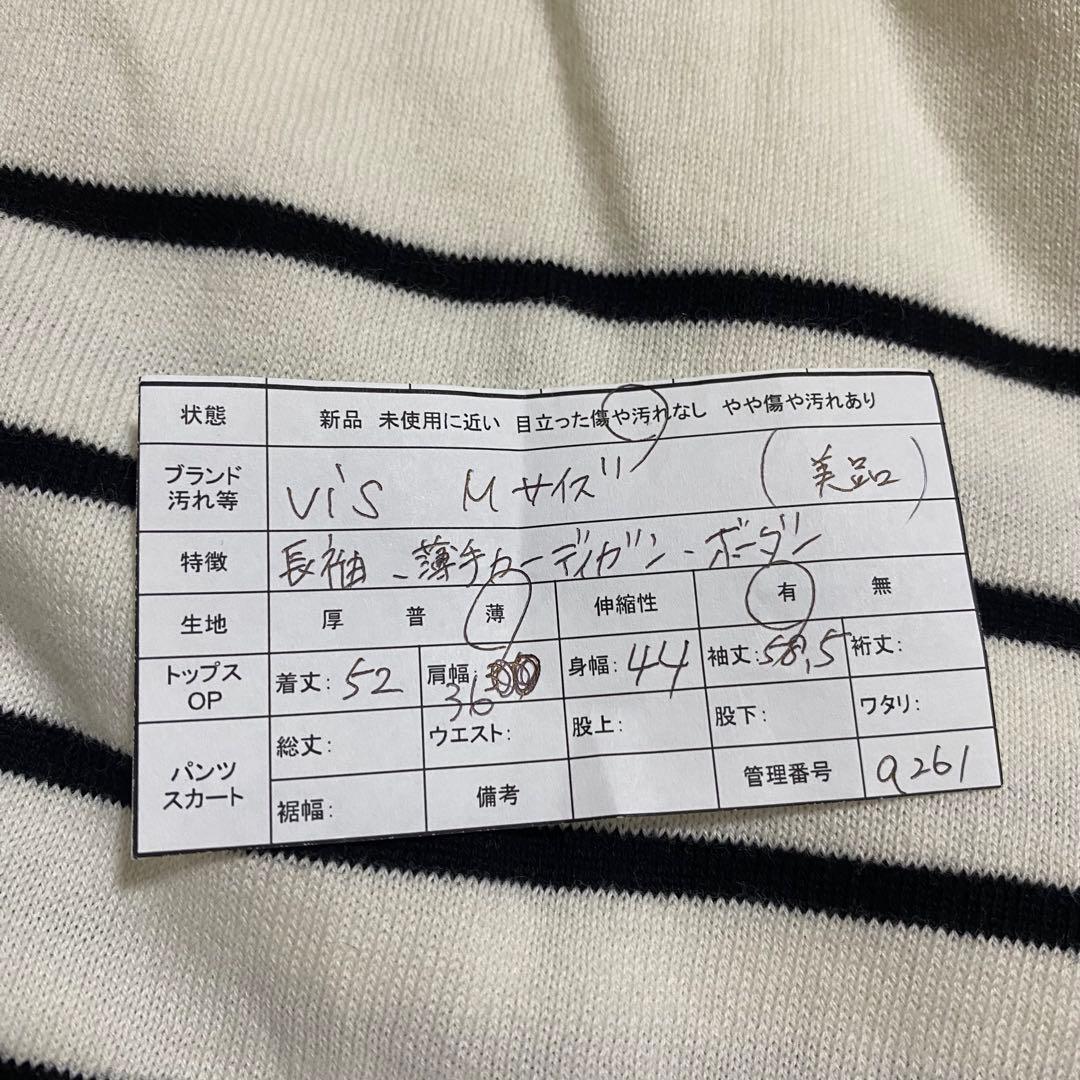 状態 新品 未使用に近い 目立った傷や汚れなし やや傷や汚れあり
ブランド 汚れ等 ViS Mサイズ (美品)
特徴 長袖、薄手カーディガン、ボーダー
生地 厚 普 薄 伸縮性 有 無
トップス OP 着丈:52 肩幅:36 身幅:44 袖丈:58,5 裄丈:
パンツ スカート 総丈: ウエスト: 股上: 股下: ワタリ:
裾幅: 備考 管理番号 a261